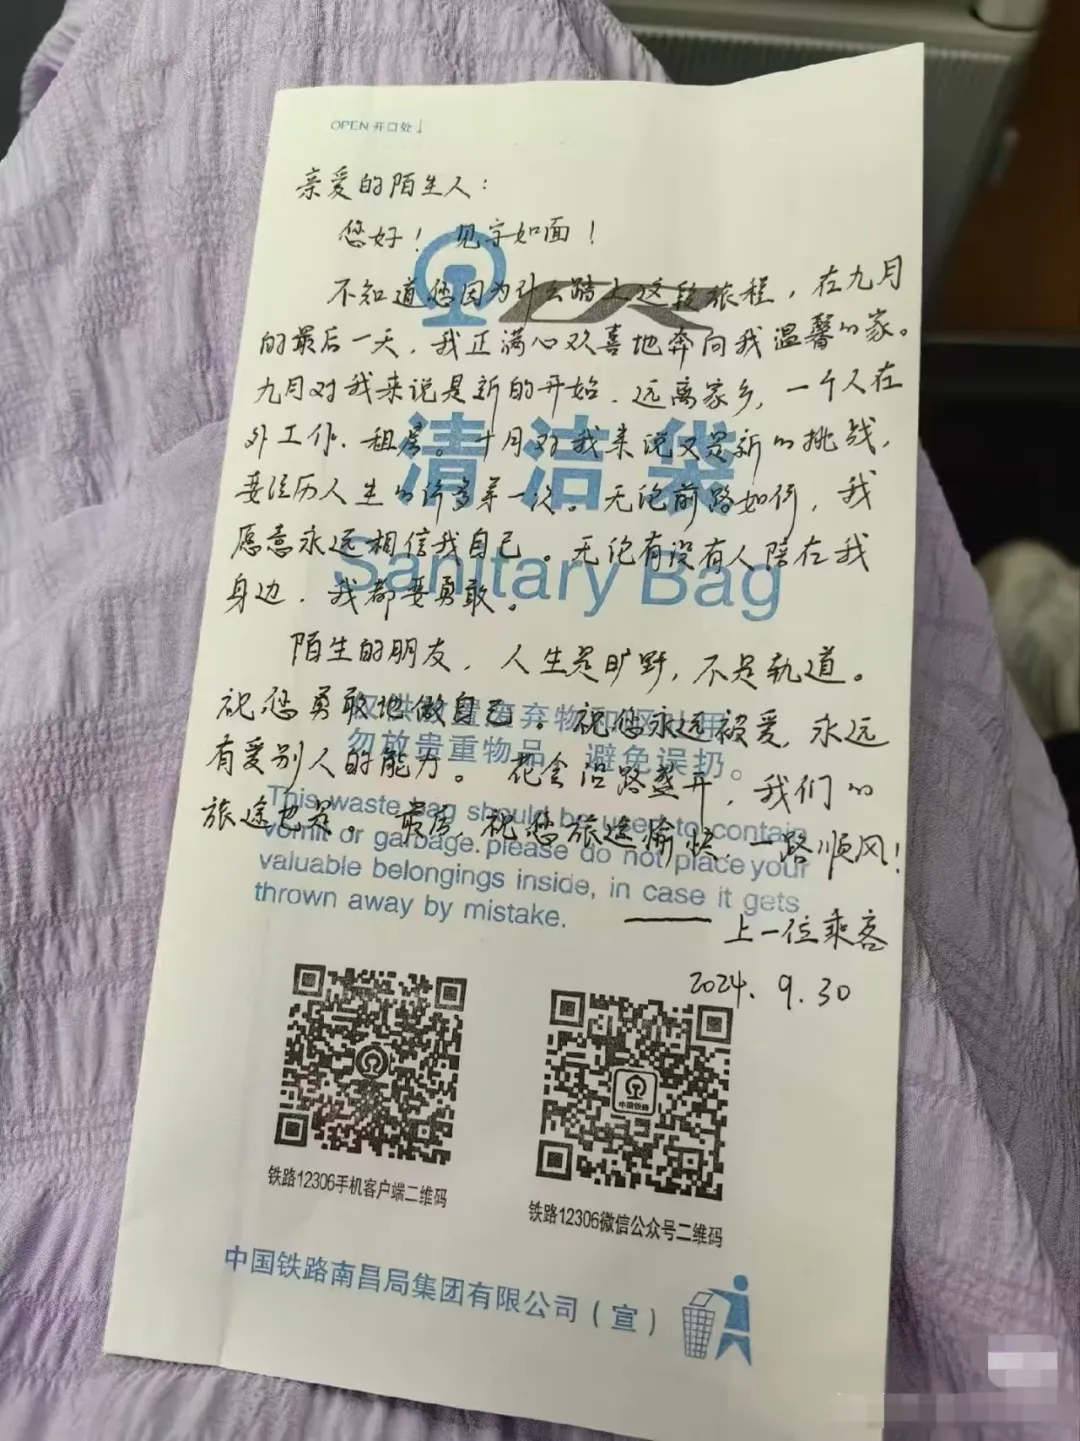 OPEN 开口处↓
亲爱的陌生人：
您好！见字如面！
不知道您因为什么踏上这段旅程，在九月
的最后一天，我正满心欢喜地奔向我温馨的家。
九月对我来说是新的开始，远离家乡，一个人在
外工作、租房。十月对我来说又是新的挑战，
要经历人生的许多第一次。无论前路如何，我
愿意永远相信我自己。无论有没有人陪在我
身边，我都要勇敢。
陌生的朋友，人生是旷野，不是轨道。
祝您勇敢地做自己。祝您永远被爱，永远
有爱别人的能力。花会沿路盛开，我们的
旅途也是。最后，祝您旅途愉快，一路顺风！
——上一位乘客
2024.9.30
清洁袋
Sanitary Bag
勿放贵重物品，避免误扔。
This waste bag should be used to contain
vomit or garbage.please do not place your
valuable belongings inside, in case it gets
thrown away by mistake.
中国铁路
铁路12306手机客户端二维码
铁路12306微信公众号二维码
中国铁路南昌局集团有限公司（宣）